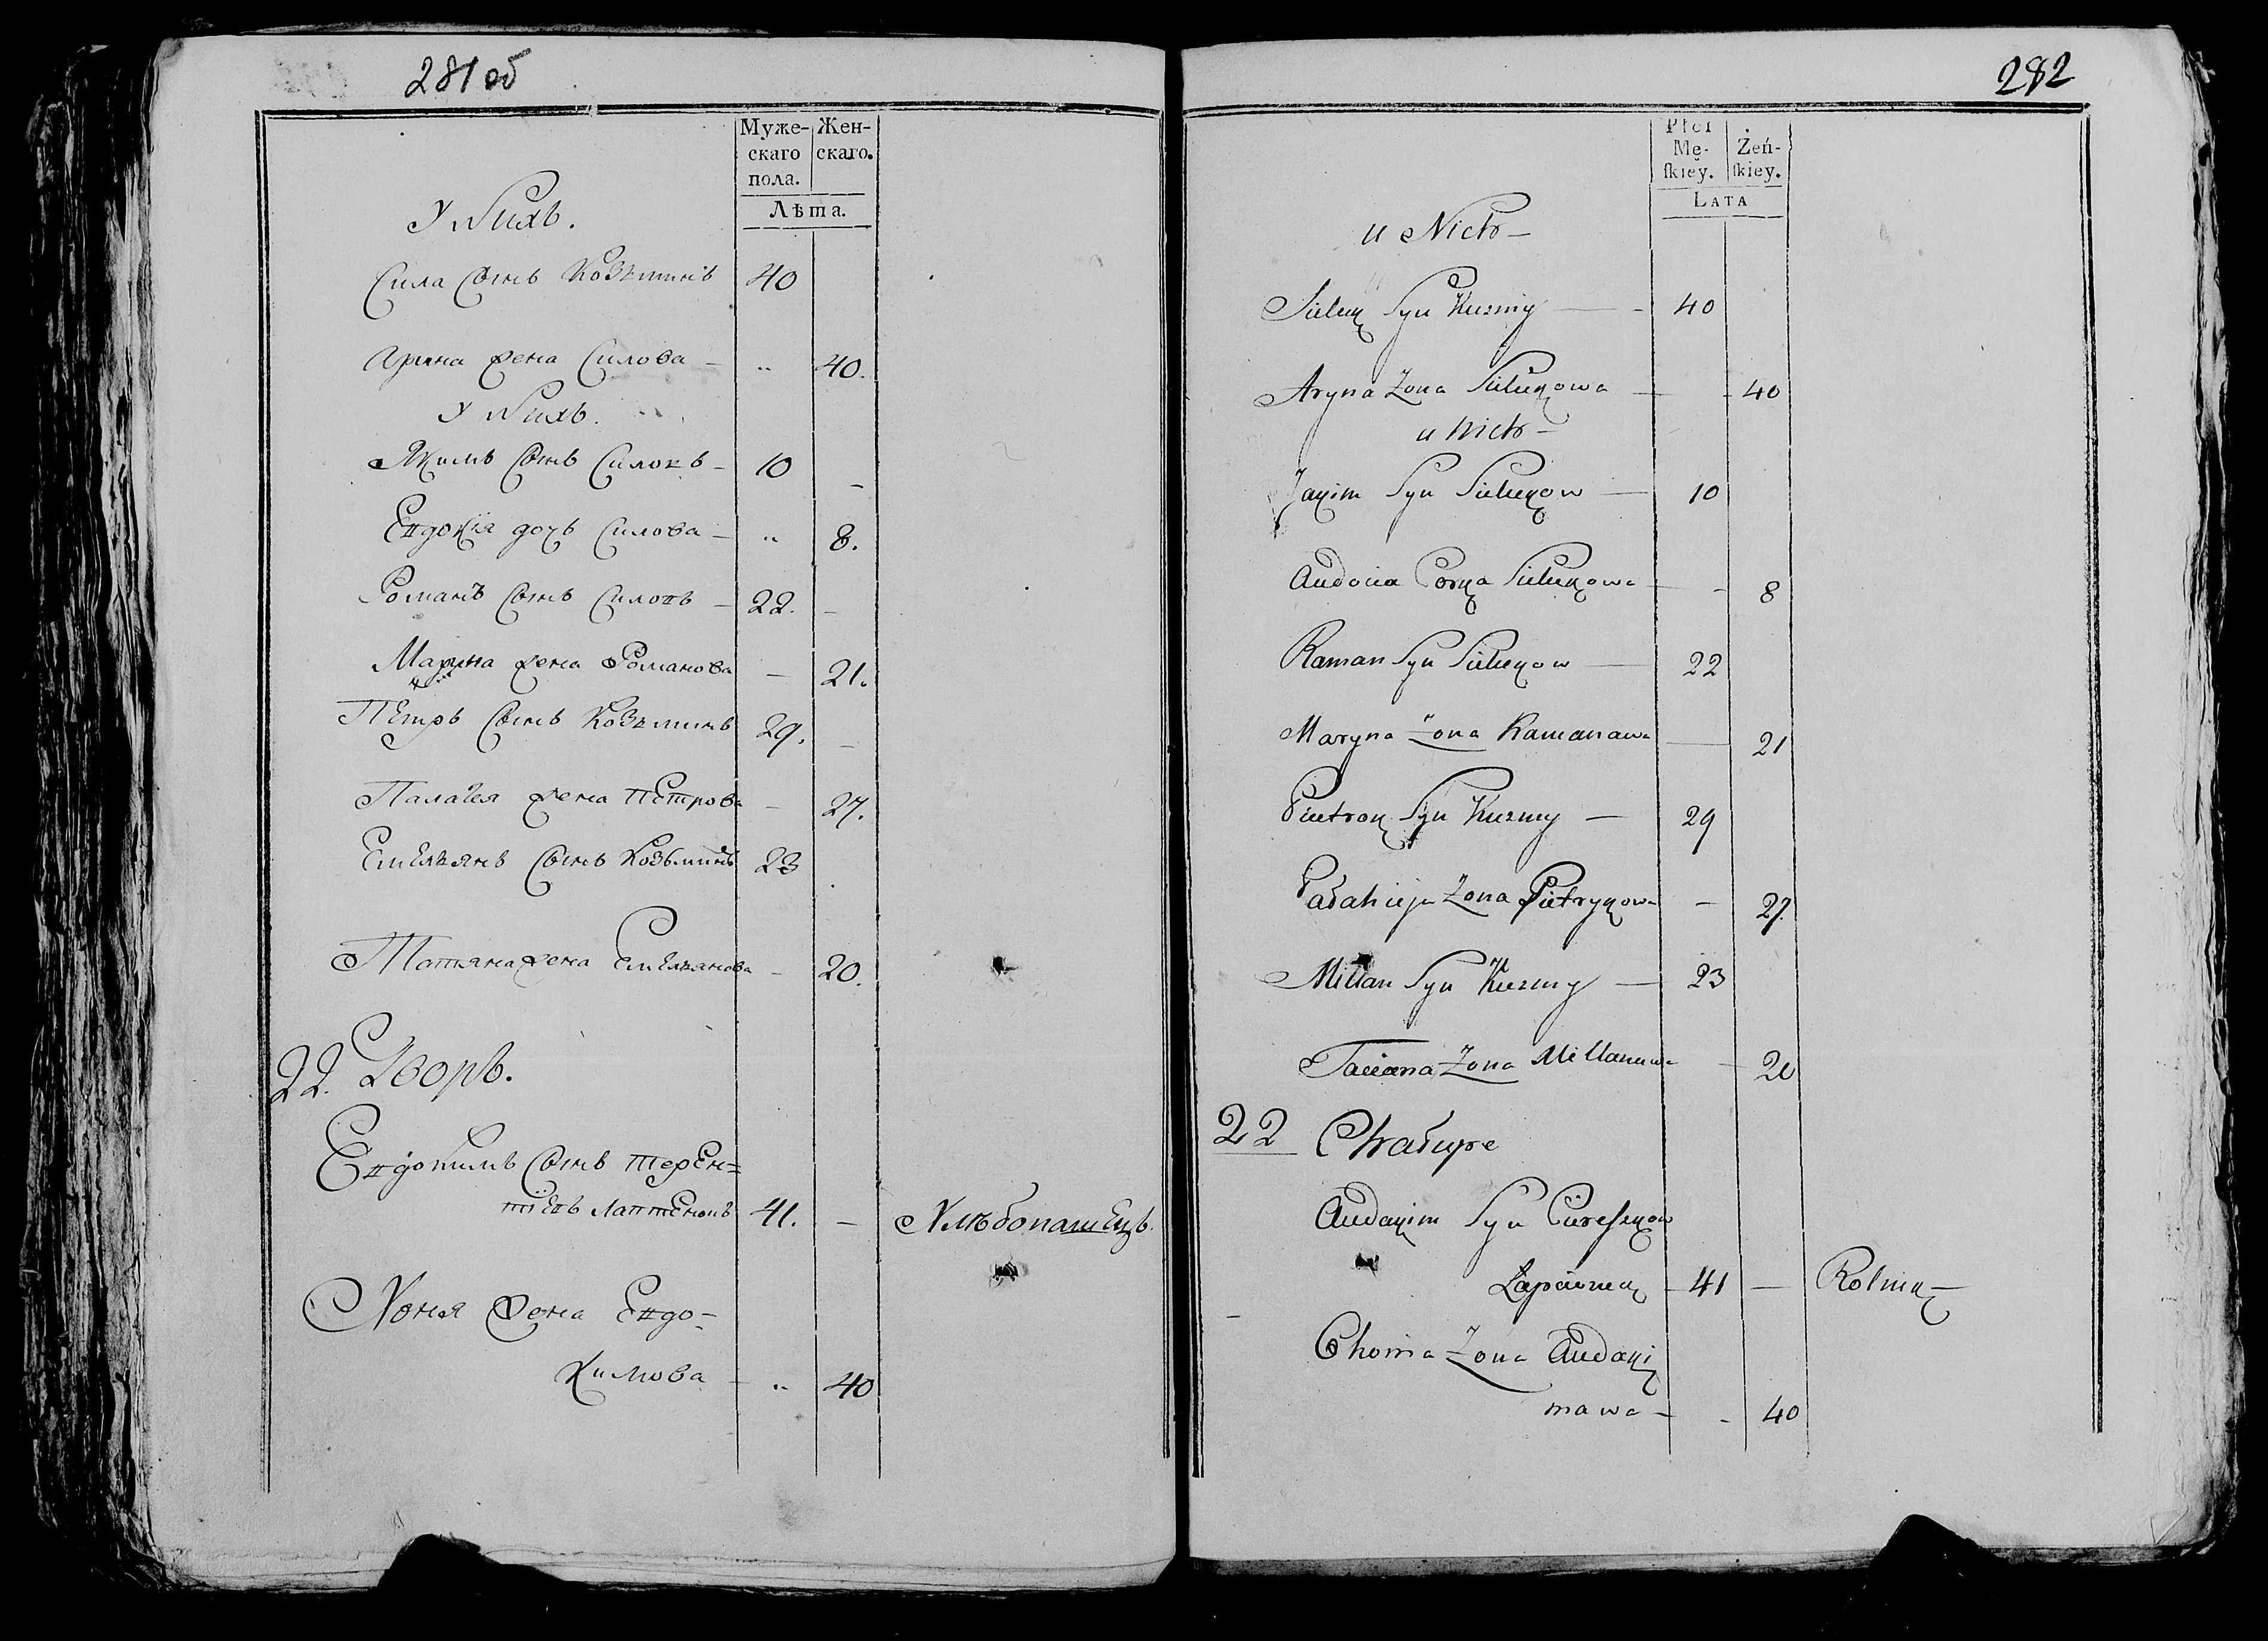 281 об
Муже- Жен-
скаго скаго.
пола.
Лѣта.
У Нихъ.
Сила Сынъ Козьминъ 40
Арина жена Силова - " 40.
У Нихъ.
Якимъ Сынъ Силовъ - 10 -
Евдокія дочь Силова - " 8.
Романъ Сынъ Силовъ - 22. -
Марина жена Романова - 21.
Петръ Сынъ Козьминъ 29. -
Палагея жена Петрова - 27.
Емельянъ Сынъ Козьминъ 23
Татьяна жена Емельянова - 20.
22. Дворъ.
Евдокимъ Сынъ Терен=
тіевъ Лаптенокъ 41. - Хлѣбопашецъ.
Хоня жена Евдо-
кимова - " 40
282
Płci
Mę- Żeń-
skiey. skiey.
LATA
u Nich -
Siluk Syn Kuzmy - 40
Aryna Zona Silukowa - 40
u Nich -
Jakim Syn Silukow - 10
Audocia Corka Silukowa - 8
Raman Syn Silukow - 22
Maryna Zona Ramanawa - 21
Piotrok Syn Kuzmy - 29
Pałahieja Zona Pietrykowa - 27.
Millan Syn Kuzmy - 23
Taciana Zona Millanowa - 20
22 Chałupa
Audakim Syn Cireszkow
Łapcionek - 41 - Rolnik -
Chonia Zona Audaki
mawa - - 40